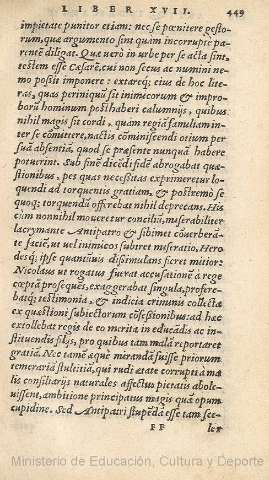 LIBER XVII. 449
impietate punitor etiam: nec se pœnitere gesto-
rum, qua argumento sint quàm incorruptè pa-
rentē diligat. Quæ verò in urbe per se acta sint,
testem esse Cæsarē, cui non secus ac numini ne-
mo possit imponere: extareq; eius de hoc lite-
ras, quas periniquū sit inimicorum & impro-
borũ hominum posthaberi calumnijs, quibus
nihil magis sit cordi, quàm regiã familiam in-
ter se cõmittere, nactis cõminiscendi otium per
suã absentiã, quod se præsente nunquã habere
potuerint. Sub finē dicēdi fidē abrogabat quæ-
stionibus, pes quas necessitas exprimeretur lo-
quendi ad torquentis gratiam, & postremò se
quoq; torquendũ offerebat nihil deprecans. His
cùm nonnihil moueretur conciliũ, miserabiliter
lacrymante Antipatro & sibimet cõuerberã-
te faciē, ut vel inimicos subiret miseratio. Hero-
desq; ipse quamuis dissimulans fieret mitior:
Nicolaus ut rogatus fuerat accusationē à rege
cœptã prosequēs, exaggerabat singula, profere-
batq; testimonia, & indicia criminis collecta
ex quæstioni subiectorum cõfessionibus: ad hæc
extollebat regis de eo merita in educãdis ac in-
stituendis filijs, pro quibus tam malã reportaret
gratiã. Nec tamē æquè mirandã fuisse priorum
temerariã stultitiã, qui rudi ætate corrupti à ma
lis consiliarijs naturales affectus pietatis abole-
uissent, ambitione principatus magis quàm opum
cupidine. Sed Antipatri stupēdã esse tam sce-
FF ler
Ministerio de Educación, Cultura y Deporte